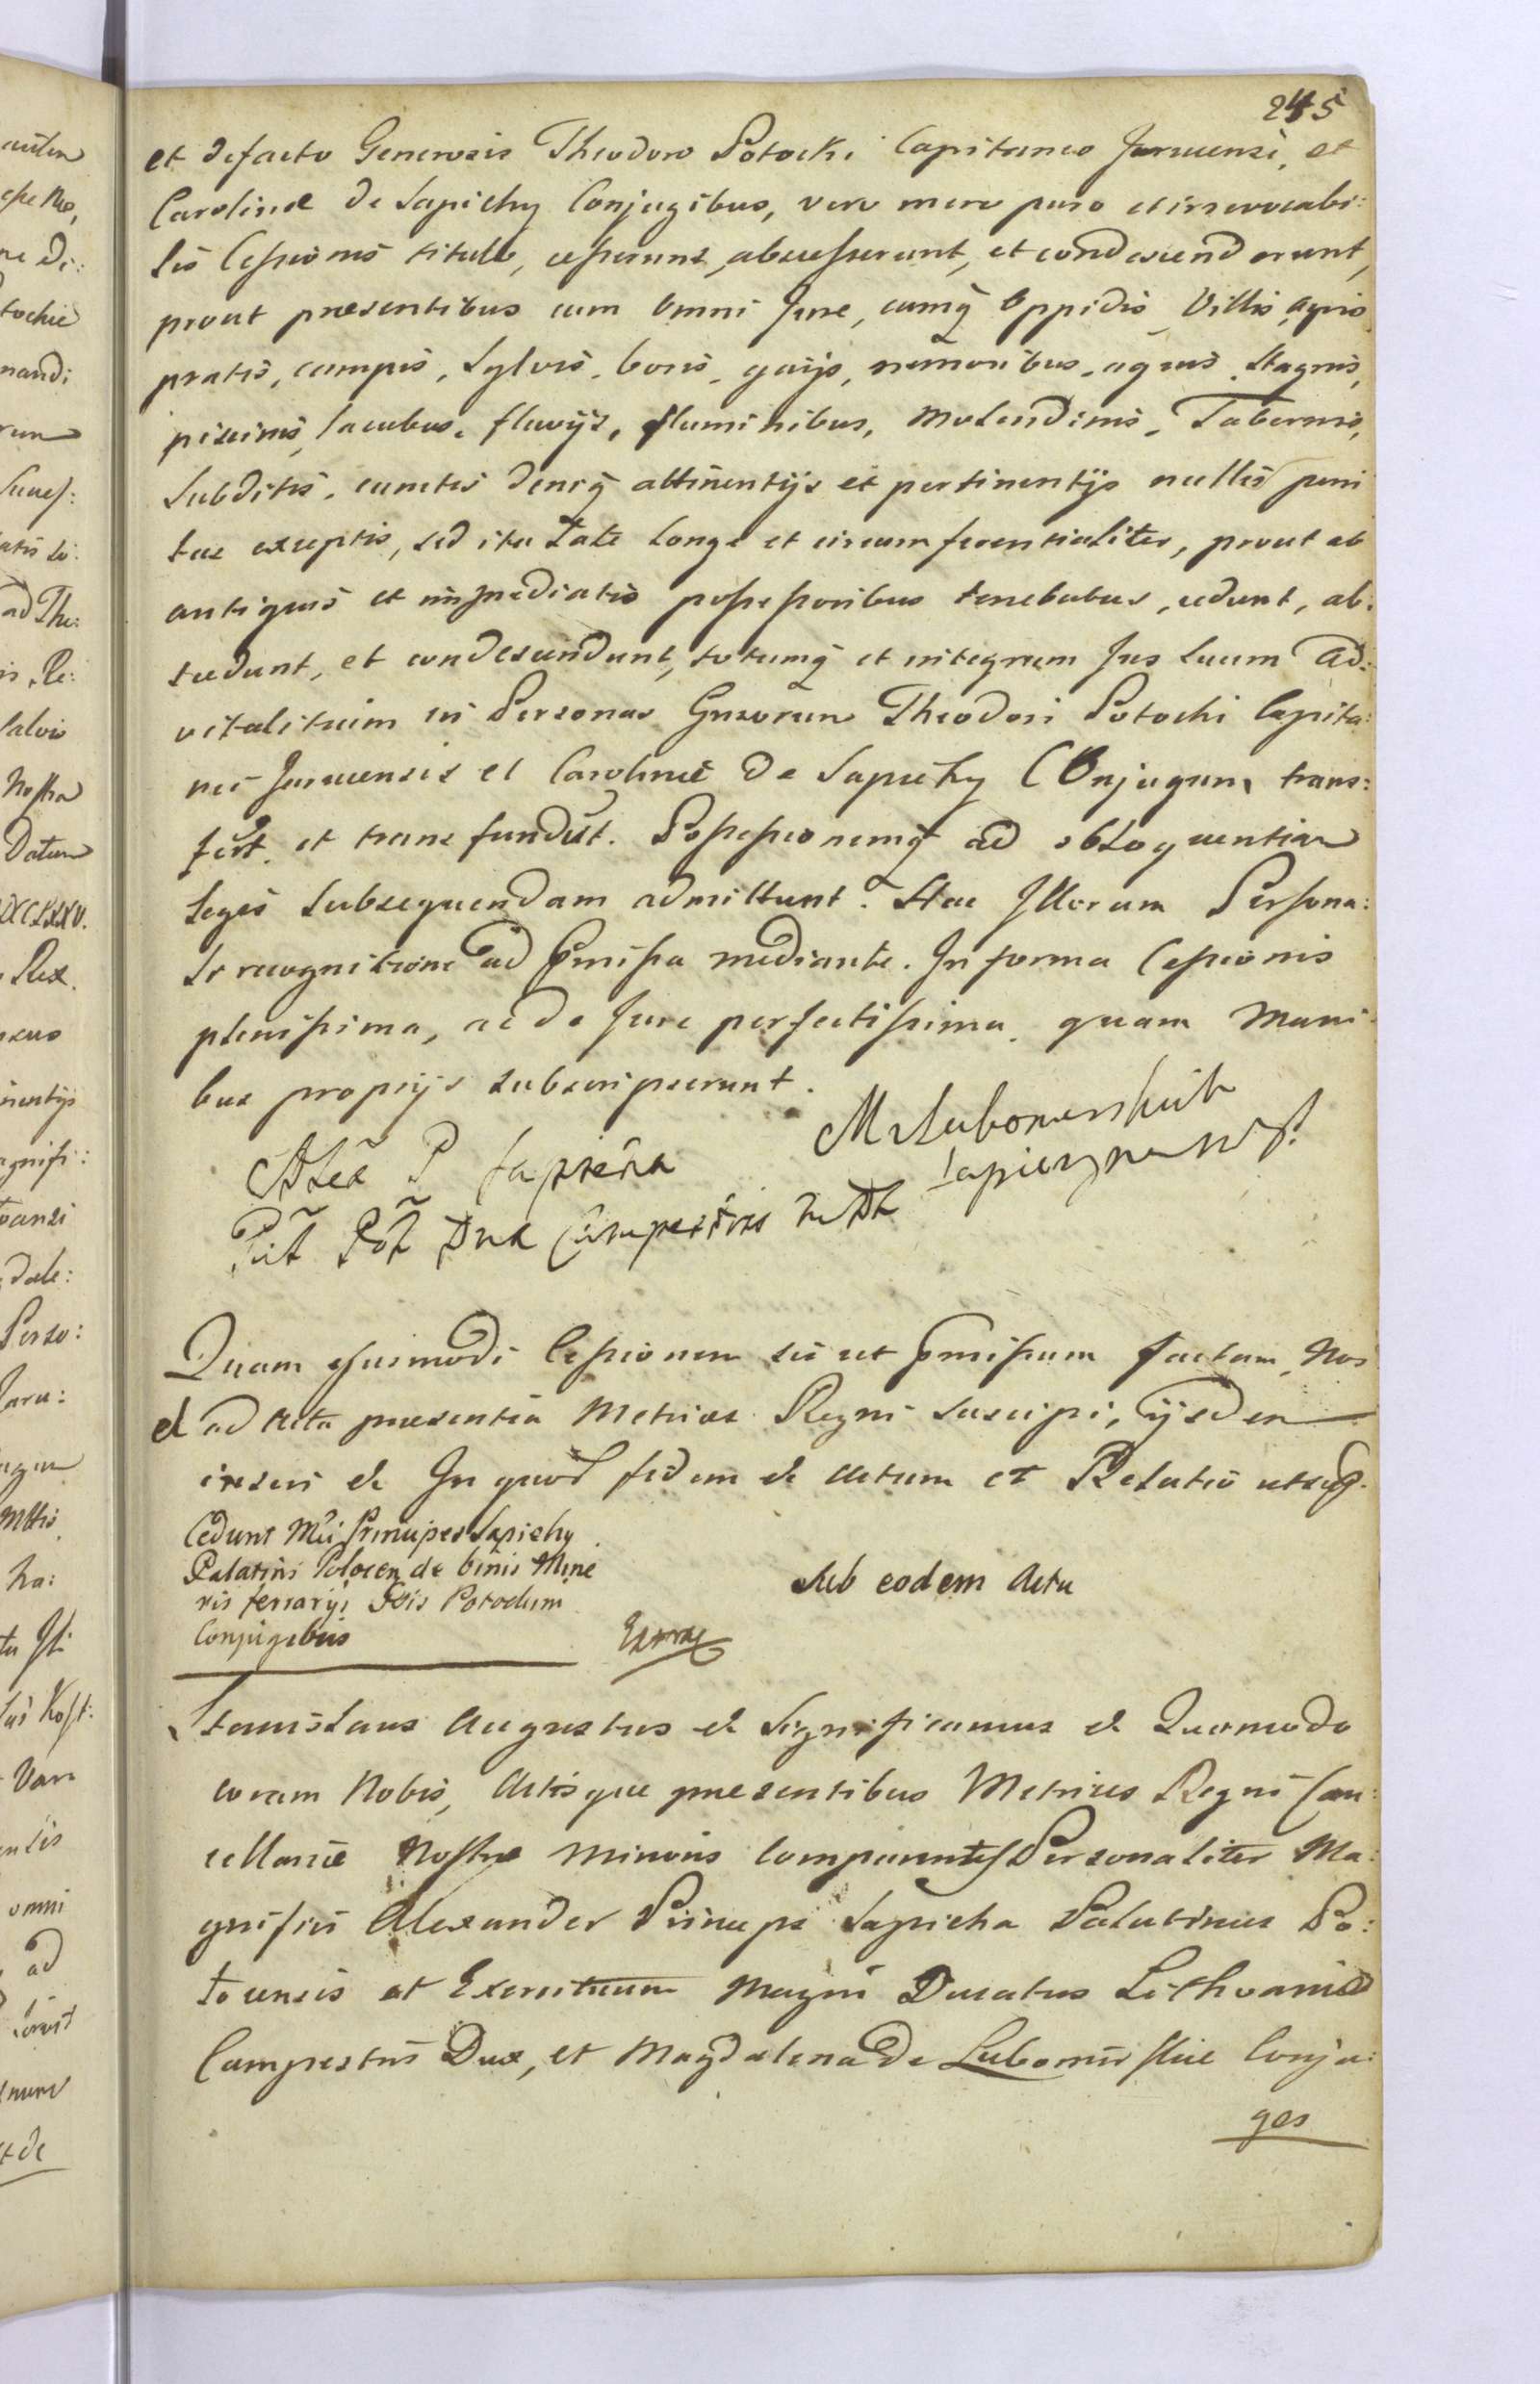 245
et defacto Generosis Theodoro Potocki Capitaneo Juruensi, et
Carolinæ de Sapiehy Conjugibus, vero mero puro et irrevocabi:
lis Cessionis titulo, cesserunt, abscesserunt, et condescenderunt,
prout præsentibus cum omni Jure, cumq̃ Oppidis, Villis, agris
pratis, campis, Sylvis, boris, gaijs, nemoribus, aquis, Stagnis,
piscinis, lacubus, fluvijs, fluminibus, Molendinis, Tabernis,
Subditis, cunctis deniq̃ attinentijs et pertinentijs nullis peni
tus exceptis, sed ita Late Longe et circumferentialiter, prout ab
antiquis et immediatis possessoribus tenebatur, cedunt, ab:
scedunt, et condescendunt, totumq̃ et integrum Jus suum Ad:
vitalitium in Personas Gnsorum Theodori Potocki Capita:
nei Juruensis et Carolinæ de Sapiehy COnjugum trans:
ferũt, et transfundũt. Possessionemq̃ ad obloquentiam
Legis subsequendam admittunt. Hac Illorum Persona:
li recognitione ad p̃missa mediante. In forma Cessionis
plenissima, ac de Jure perfectissima, quam Mani
bus proprijs subscripserunt.
Alex P Sapieha
M zLubomirskich
Sapieżyna
Płt Poł Dux Campestris
Quam ejusmodi Cessionem sic ut p̃missum factam, Nos
et ad Acta præsentia Metrices Regni suscipi, ijsdem
inseri et In quor̃ fidem et Actum et Relatio ut sup.
Cedunt Mci Principes Sapiehy
Palatini Polocen de binis Mine
ris ferrarijs Gsis Potockim
Conjugibus
Sub eodem Actu
Stanislaus Augustus et Significamus et Quomodo
coram Nobis, Actisque præsentibus Metrices Regni Can:
cellariæ Nostræ Minoris Comparentes Personaliter Ma:
gnifici Alexander Princeps Sapieha Palatinus Po:
locensis et Exercituum Magni Ducatus Lithvaniæ
Campestris Dux, et Magdalena de Lubomirskie Conju:
ges